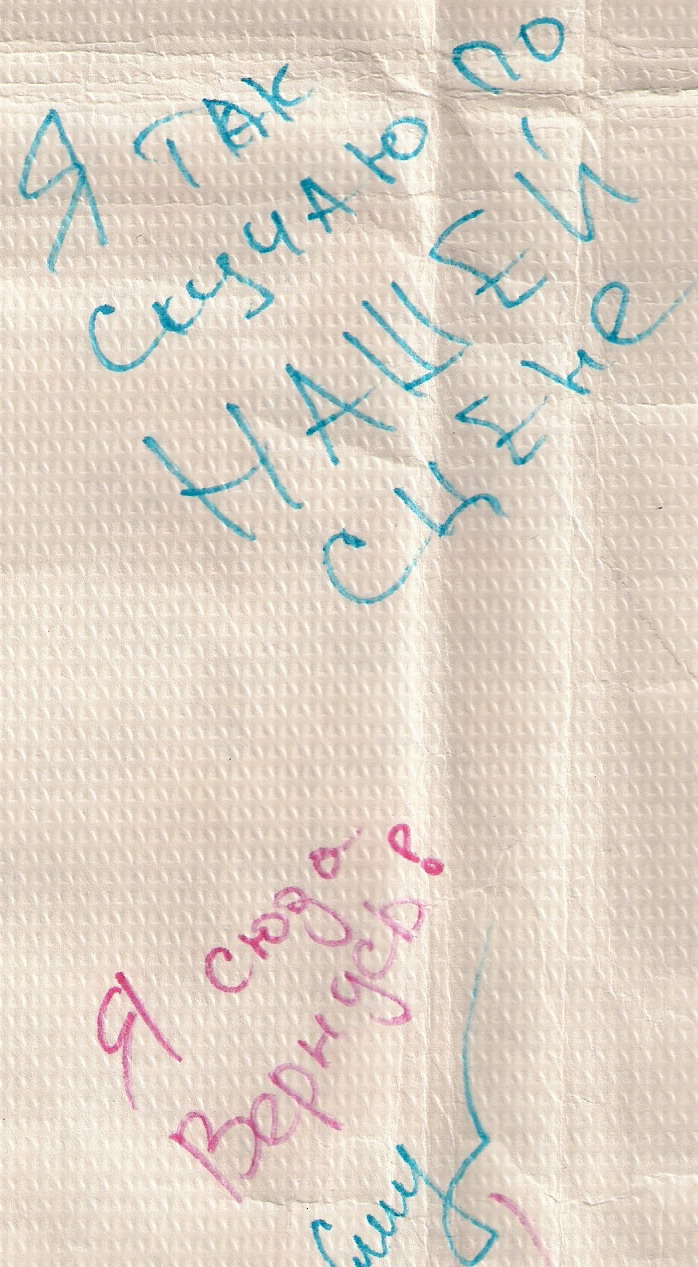 Я ТАК
скучАЮ по
НАШЕЙ
сцене
Я сюда
Вернусь?